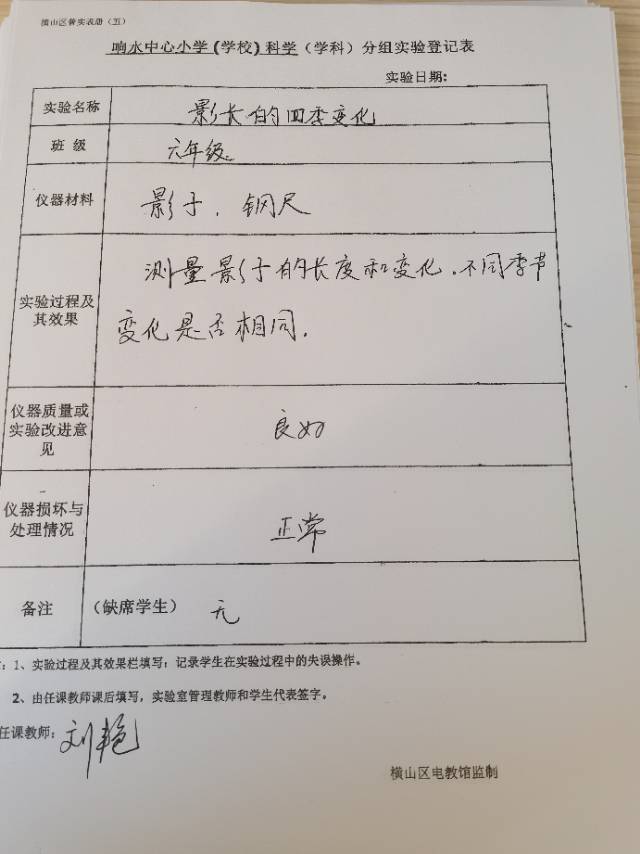 横山区普实表册（五）
响水中心小学(学校)科学（学科）分组实验登记表
实验日期:
实验名称 影长的四季变化
班 级 六年级。
仪器材料 影子，钢尺
测量影子的长度和变化．不同季节
实验过程及其效果 变化是否相同．
仪器质量或
实验改进意
见 良好
仪器损坏与
处理情况 正常
备注 （缺席学生） 无
：1、实验过程及其效果栏填写：记录学生在实验过程中的失误操作。
2、由任课教师课后填写，实验室管理教师和学生代表签字。
任课教师: 刘艳
横山区电教馆监制